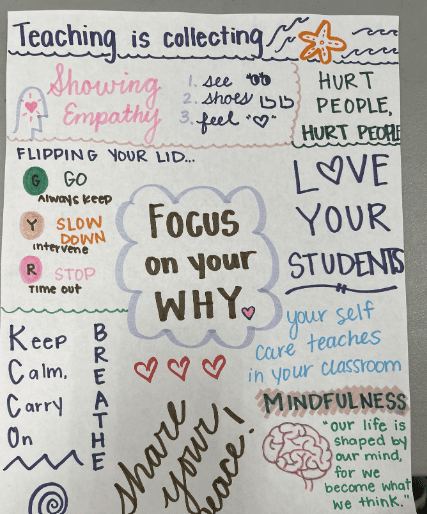 Teaching is collecting
Showing
Empathy
1. see
2. shoes
3. feel
HURT
PEOPLE,
HURT PEOPLE
FLIPPING YOUR LID...
G GO
Always keep
Y SLOW
DOWN
intervene
R STOP
Time out
FOCUS
on your
WHY
LOVE
YOUR
STUDENTS
your self
care teaches
in your classroom
Keep
Calm,
Carry
On
BREATHE
share
your
peace!
MINDFULNESS
"our life is
shaped by
our mind,
for we
become what
we think."